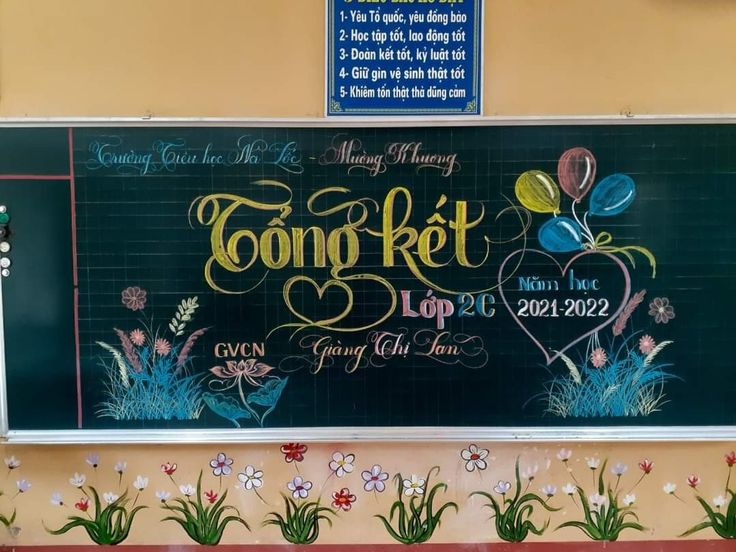 1- Yêu Tổ quốc, yêu đồng bào
2- Học tập tốt, lao động tốt
3- Đoàn kết tốt, kỷ luật tốt
4- Giữ gìn vệ sinh thật tốt
5- Khiêm tốn thật thà dũng cảm
Trường Tiểu học Na Lốc - Mường Khương
Tổng kết
Lớp 2C
Năm học
2021-2022
GVCN
Giàng Thị Lan